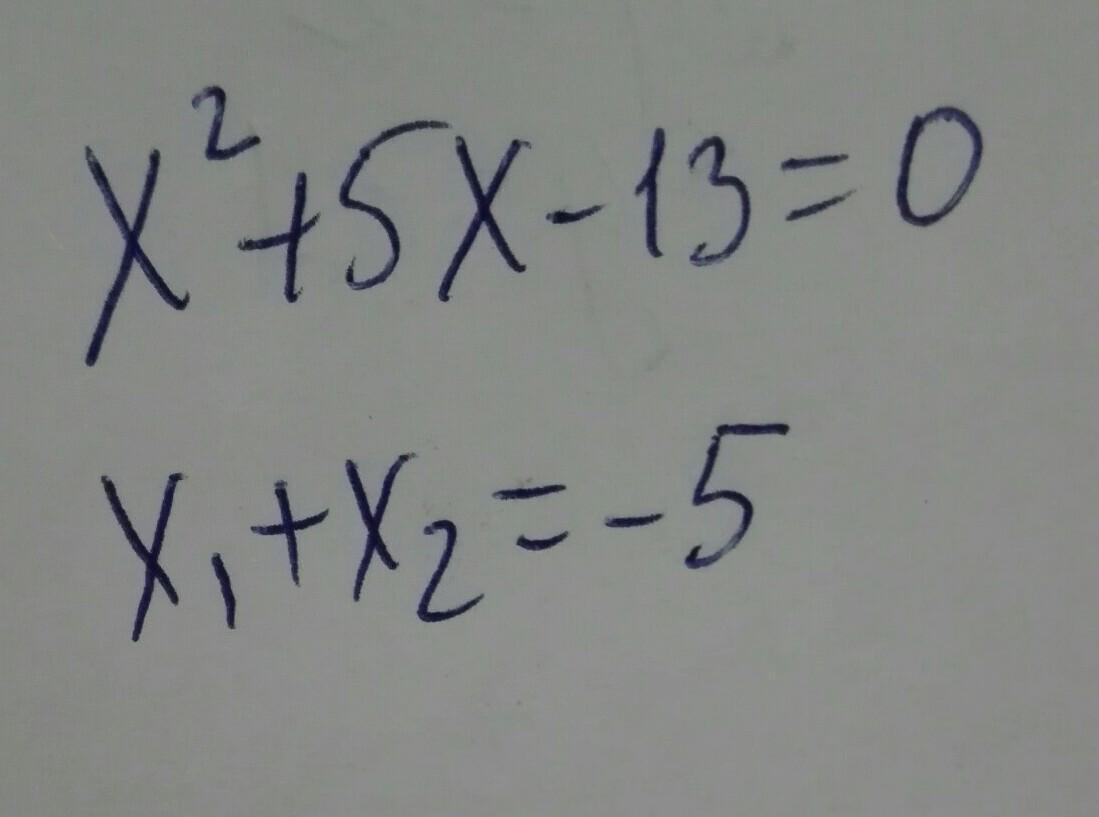 x²+5x-13=0
x₁+x₂=-5